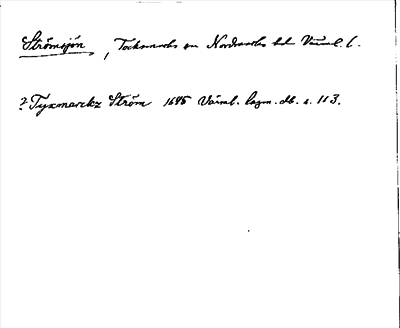 Strömsjön, Tocksmarks sn Nordmarks hd Värml. l.
? Tyxmarckz Ström 1645 Värml. lagm. db. s. 113.